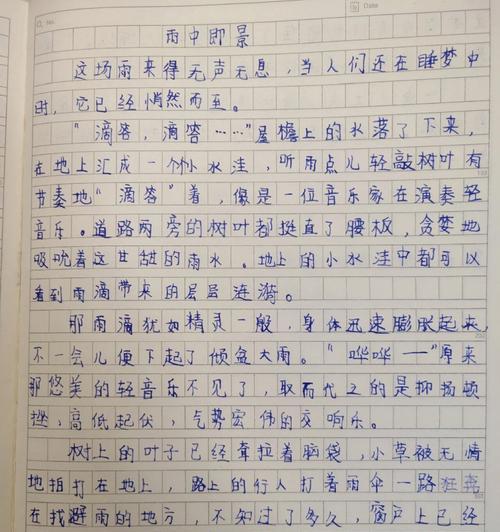 No.
Date
雨中即景
这场雨来得无声无息，当人们还在睡梦中
时，它已经悄然而至。
"滴答，滴答……"屋檐上的水落了下来，
在地上汇成一个个小水洼，听雨点儿轻敲树叶有
节奏地"滴答"着，像是一位音乐家在演奏轻
音乐。道路两旁的树叶都挺直了腰板，贪婪地
吸吮着这甘甜的雨水。地上的小水洼中都可以
看到雨滴带来的层层涟漪。
那雨滴犹如精灵一般，身体迅速膨胀起来，
不一会儿便下起了倾盆大雨。"哗哗——"原来
那悠美的轻音乐不见了，取而代之的是抑扬顿
挫，高低起伏，气势宏伟的交响乐。
树上的叶子已经耷拉着脑袋，小草被无情
地拍打在地上，路上的行人打着雨伞一路狂奔
在找避雨的地方，不知过了多久，窗户上已经